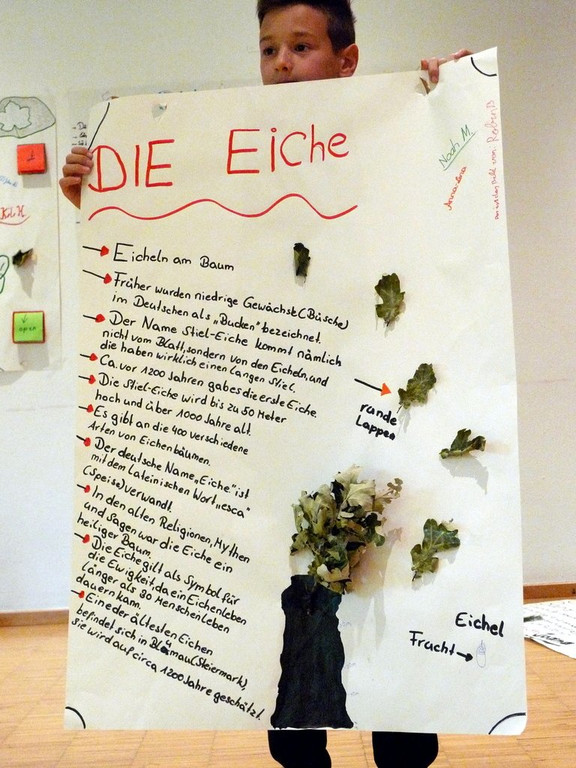 DIE EICHE
Noah M.
Anna-Lena
Eicheln am Baum
Früher wurden niedrige Gewächse (Büsche)
im Deutschen als „Bucken" bezeichnet.
Der Name Stiel-Eiche kommt nämlich
nicht vom Blatt, sondern von den Eicheln, und
die haben wirklich einen langen Stiel.
Ca. vor 1200 Jahren gab es die erste Eiche.
Die Stiel-Eiche wird bis zu 50 Meter
hoch und über 1000 Jahre alt.
Es gibt an die 400 verschiedene
Arten von Eichenbäumen.
Der deutsche Name „Eiche" ist
mit dem lateinischen Wort „esca"
(Speise) verwandt.
In den alten Religionen, Mythen
und Sagen war die Eiche ein
heiliger Baum.
Die Eiche gilt als Symbol für
die Ewigkeit, da ein Eichenleben
länger als 30 Menschenleben
dauern kann.
Eine der ältesten Eichen
befindet sich in Blumau (Steiermark),
sie wird auf circa 1200 Jahre geschätzt.
runde
Lappen
Eichel
Frucht
open